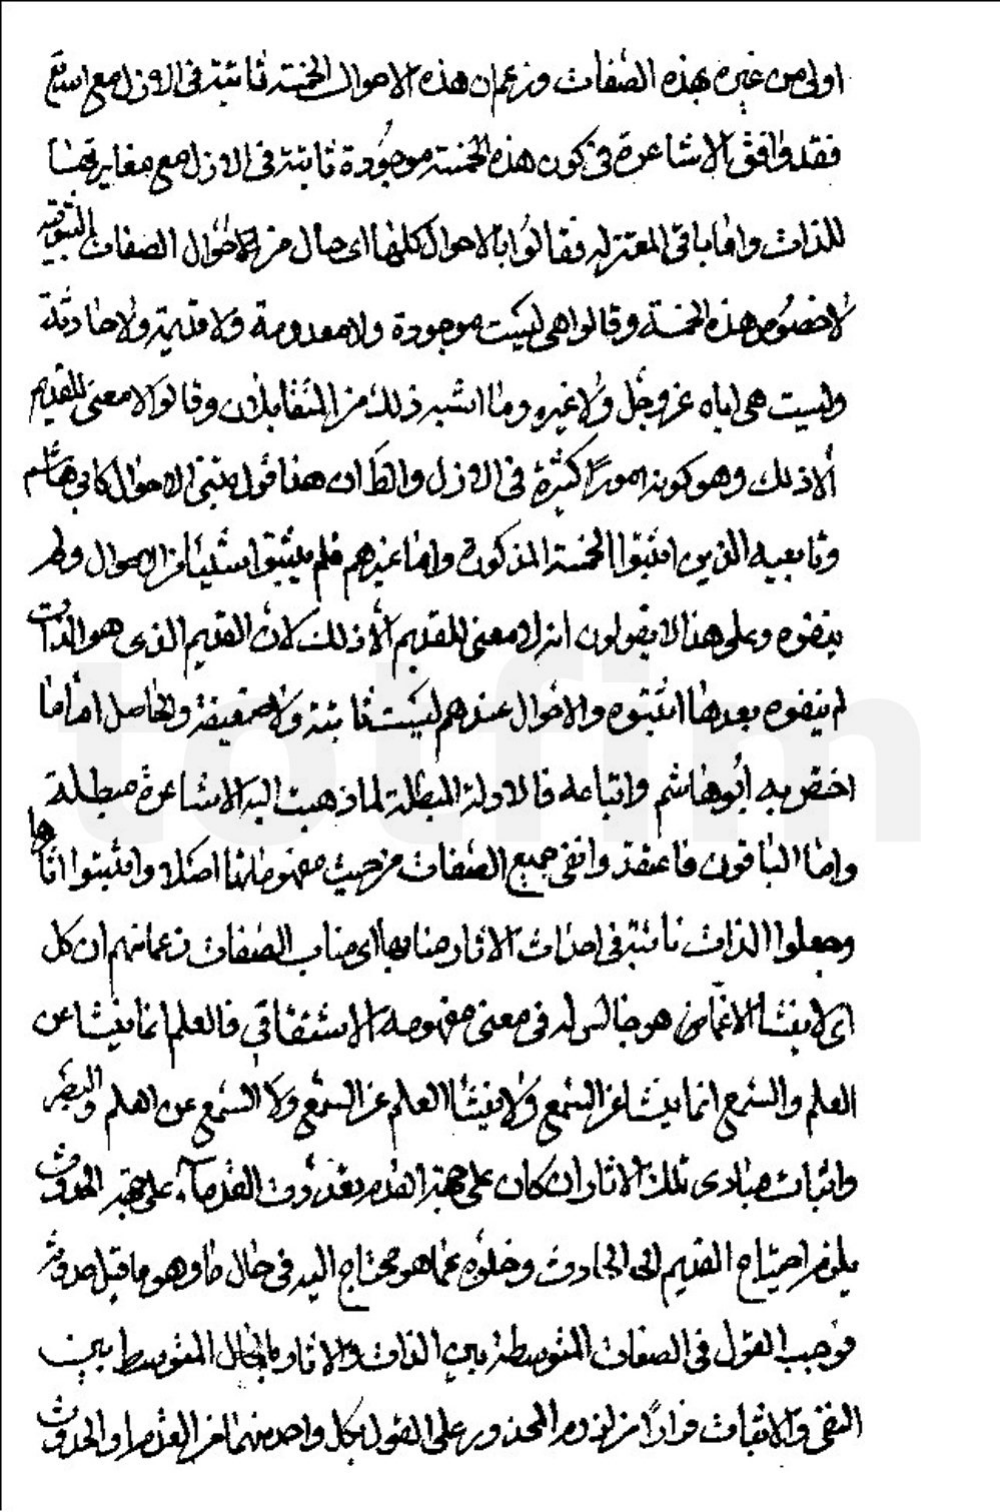 اولى من غيره بهذه الصفات وزعم ان هذه الاحوال الخمسة ثابتة فى الازل مع
فقد وافق الاشاعرة فى كون هذه الخمسة موجودة ثابتة فى الازل مع مغايرتها
للذات واما باقى المعتزلة فقالوا بالاحوال كلها اى حال من الاحوال الصفات الثبوتية
لا خصوص هذه الخمسة وقالوا هى ليست موجودة ولا معدومة ولا قديمة ولا حادثة
وليست هى اياه عز وجل ولا غيره وما اشبه ذلك من المتقابلان وقالوا لا معنى للقديم
الا ذلك وهو كونه امورا كثيرة فى الازل والظ ان هذا قول مثبتى الاحوال كابى هاشم
وتابعيه الذين اثبتوا الخمسة المذكورة واما غيرهم فلم يثبتوا شيئا من الاحوال ولم
ينفوه وعلى هذا لا يقولون انه لا معنى للقديم الا ذلك لان القديم الذى هو الذات
لم ينفوه بعد ما اثبتوه والاحوال عندهم ليست ثابتة ولا منفية والحاصل اما ما
اختص به ابو هاشم واتباعه فالادلة المبطلة لما ذهبت اليه الاشاعرة مبطلة لها
واما الباقون فاعتقدوا نفى جميع الصفات من حيث مفهوماتها اصلا واثبتوا اثارها
وجعلوا الذات نائبة فى احداث الاثار منابها اى مناب الصفات زعما منهم ان كل
اى لا ينشأ الا عما من هو جالس له فى معنى مفهومه الاشتقاقى فالعلم انما ينشا عن
العلم والسمع انما ينشا عن السمع ولا ينشأ العلم عن السمع ولا السمع عن العلم والبصر
واثبات مبادى تلك الاثار ان كان على جهة القدم تعددت القدماء على جهة الحدوث
يلزم احتياج القديم الى الحادث وخلوه عما هو محتاج اليه فى حال ما وهو ما قبل حدوثه
فوجب القول فى الصفات المتوسطة بين الذات والاثار بالحال المتوسط بين
النفى والاثبات فرارا من لزوم المحذور على القول بكل واحد منهما من القدم او الحدوث